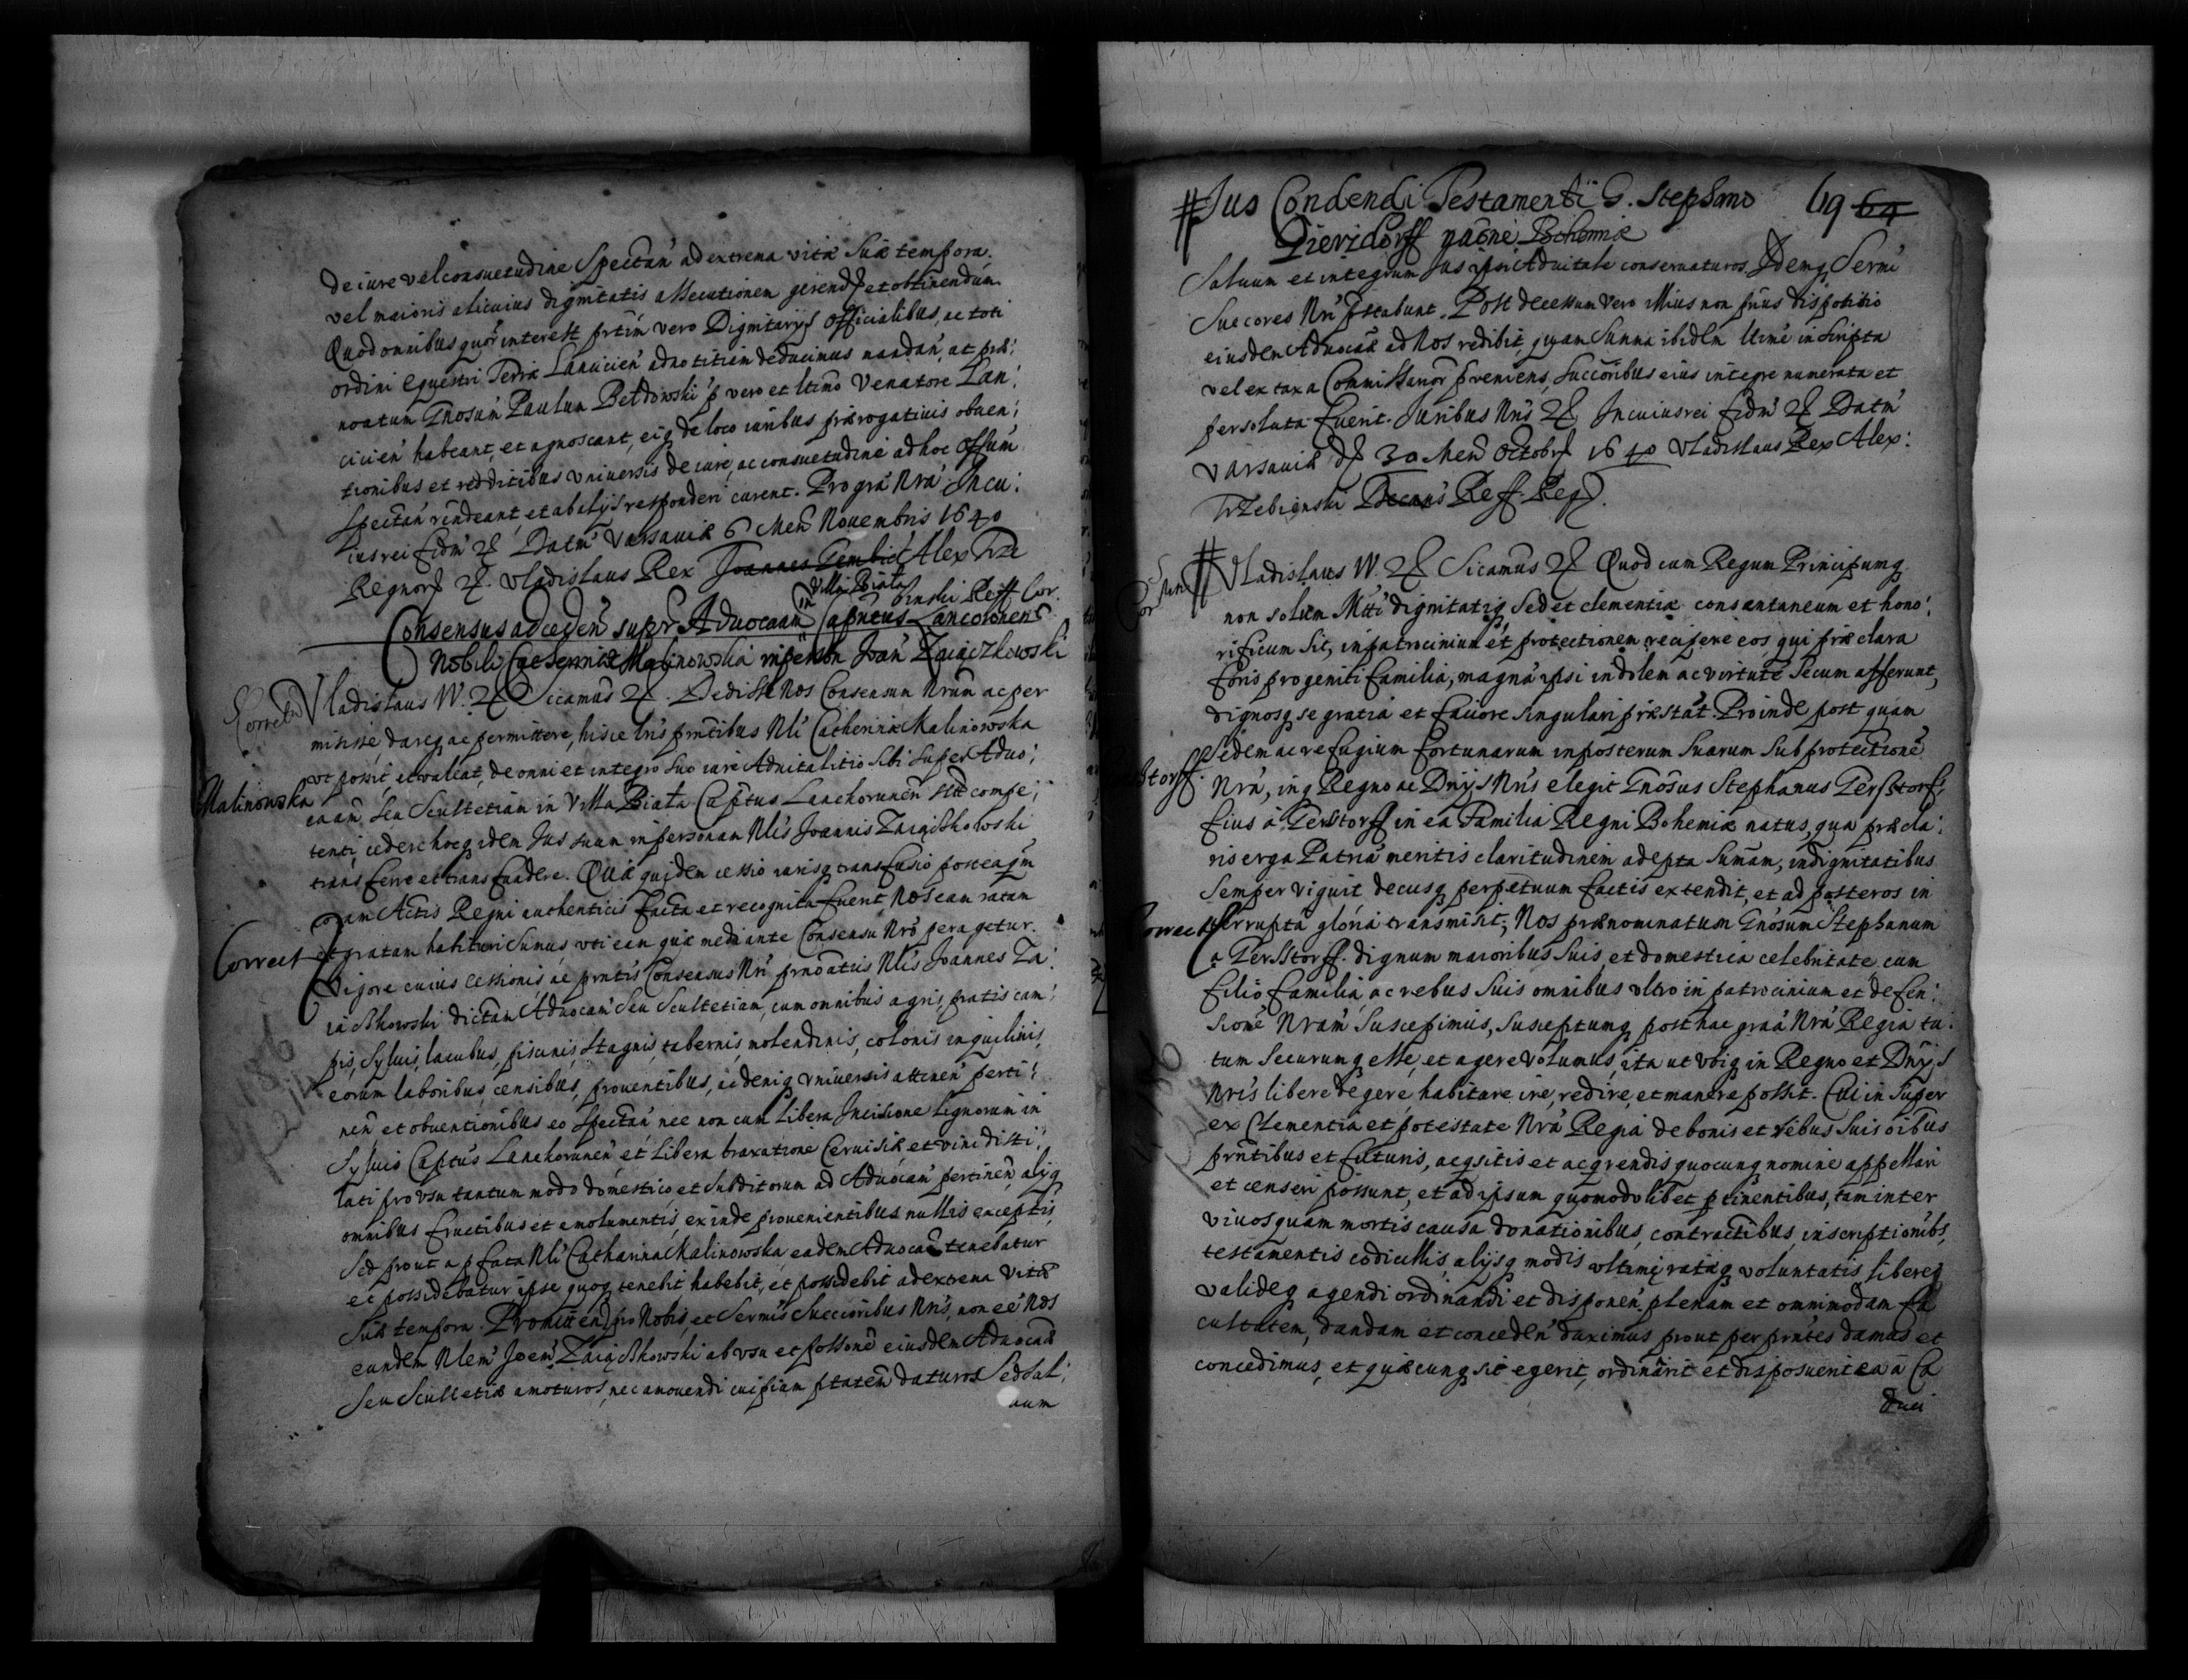 de iure vel consuetudine Spectań ad extrema vitæ Suæ tempora
vel maioris alicuius dignitatis assecutionem gerend et obtinendum
Quod omnibus quor̃ interest prtim̃ vero Dignitarijs Officialibus, ac toti
ordini Equestri Terræ Lancicień ad notitiam deducimus mandań, ut præ:
noatum Gnosum Paulum Bełdowski p vero et ltimo Venatore Lan:
cicień habeant, et agnoscant, eiq de loco iuribus prærogatiuis obuen:
tionibus et redditibus vniuersis de iure, ac consuetudine ad hoc Offum
Spectań rñdeant, et ab alijs responderi curent. Pro gra Nra. Incu:
ius rei fidm̃ &. Datm̃ Varsauiæ 6 Mens̃ Nouembris 1640
Regnor &. Vladislaus Rex Joannes Gembic Alex Trze
binski Reff Cor.
Consensus ad ceden̄ supr Aduocaam in Villa Biała Capntus Lancoronens̃
Nobili Catherinæ Malinowska in person Joan̄ Zaiączkowski
Correcta Vladislaus IV. & Sicamus &. Dedisse Nos Consensum Nrum ac per
misisse dareq ac permittere, hisce Lris prntibus Nli Catherinæ Malinowska
vt possit, et valeat, de omni et integro suo iure Aduitalitio sibi super Aduo:
Malinowska caam̃ seu Scultetiam in Villa Biała Captus Lanchorunen̄ compe:
tenti, cedere hocq idem Jus suum in personam Nlis Joannis Zaiączkowski
transferre et transfundere. Quæ quidem cessio iurisq transfusio posteaqm̃
coram Actis Regni authenticis facta et recognita fuerit, Nos eam ratam
Correct et gratam habituri Sumus vti eam quæ mediante Consensu Nro peragetur.
Vigore cuius cessionis ac prntis Consensus Nri prnoatus Nlis Joannes Za:
iączkowski dictam Aduocam̃ Seu Scultetiam, cum omnibus agris, pratis cam:
pis, Syluis, lacubus, piscinis, Stagnis, tabernis, molendinis, colonis inquilinis,
eorum laboribus, censibus, prouentibus, ac deniq vniuersis attinen̄ perti:
nen̄ et obuentionibus eo Spectań nec non cum Libera Incisione Lignorum in
Syluis Captus Lanchorunen̄ et Libera braxatione Ceruisiæ et vini disti:
lati pro vsu tantum modo domestico et Subditorum ad Aduocam̃ pertinen̄, alijq
omnibus fructibus et emolumentis, exinde prouenientibus nullis exceptis,
Sed prout a pfata Nli Catharina Malinowska, eadem Aduoca tenebatur
et possidebatur ipse quoq tenebit habebit, et possidebit ad extrema Vitæ
Suæ tempora. Promitten̄ pro Nobis, et Sermis Succesoribus Nris, non eē Nos
eundem Nlem Joem̃ Zaiączkowski ab vsu et possone eiusdem Aduocaæ
Seu Scultetiæ amoturos, nec amouendi cuipiam ptatem daturos Sed sal:
uum
Jus Condendi Testamenti G. Stephano 69 64
Dierzdorff naone Bohemiæ
Saluum et integrum Jus ipsi Aduitale conseruaturos. Idemq Sermi
Succores Nri pstabunt. Post decessum vero illius non prius dispositio
eiusdem Aduocaæ ad Nos redibit, quam Summa ibidem ltime inscripta
vel ex taxa Commissarior̃ pveniens, Succoribus eius integre numerata et
persoluta fuerit. Juribus Nris & In cuius rei fidm̃ & Datm̃
Varsauiæ d 30 Mens̃ Octobr 1640 Vladislaus Rex Alex:
Trzebienski Decanus Reff. Reg.
Vladislaus IV. & Sicamus & Quod cum Regum Principumq
non solum Mtti dignitatiq, Sed et clementiæ consentaneum et hono:
rificum Sit, in patrocinium et protectionem recipere eos, qui præclara
foris progeniti familia, magna ipsi indolem ac virtute Secum afferunt,
dignosq se gratia et fauore singulari præstat. Proinde post quam
Sedem ac refugium fortunarum inposterum Suarum Sub protectione
Storff. Nra, inq Regno ac Dnijs Nris elegit Gnosus Stephanus Gersstorf,
fius à Gersstorff in ea familia Regni Bohemiæ natus, qua præcla:
ris erga Patria meritis claritudinem adepta Sumam, in dignitatibus
Semper viguit, decusq perpetuum factis extendit, et ad posteros in
Correct terrupta gloria transmisit; Nos prænominatum Gnosum Stephanum
a Gersstorff. dignum maioribus Suis, et domestica celebritate, cum
filio familia, ac rebus Suis omnibus vltro in patrocinium et defen:
sione Nram Suscepimus, Susceptumq post hac graa Nra Regia tu:
tum Securumq esse, et agere volumus, ita ut vbiq in Regno et Dnijs
Nris libere degere, habitare ire, redire, et manere possit. Cui in Super
ex Clementia et potestate Nra Regia de bonis et rebus Suis oibus
prntibus et futuris, acqsitis et acqrendis quocunq nomine appellari
et censeri possunt, et ad ipsum quomodolibet ptinentibus, tam inter
viuos quam mortis causa donationibus, contractibus, inscriptionibs,
testamentis codicillis, alijsq modis vltimi ratiq voluntatis libereq
valideq agendi ordinandi et disponen̄ plenam et omnimodam fa
cultatem, dandam et conceden̄ duximus prout per prntes damus et
concedimus, et quæcunq sic egerit, ordinarit et disposuerit ea ā Ca
duci